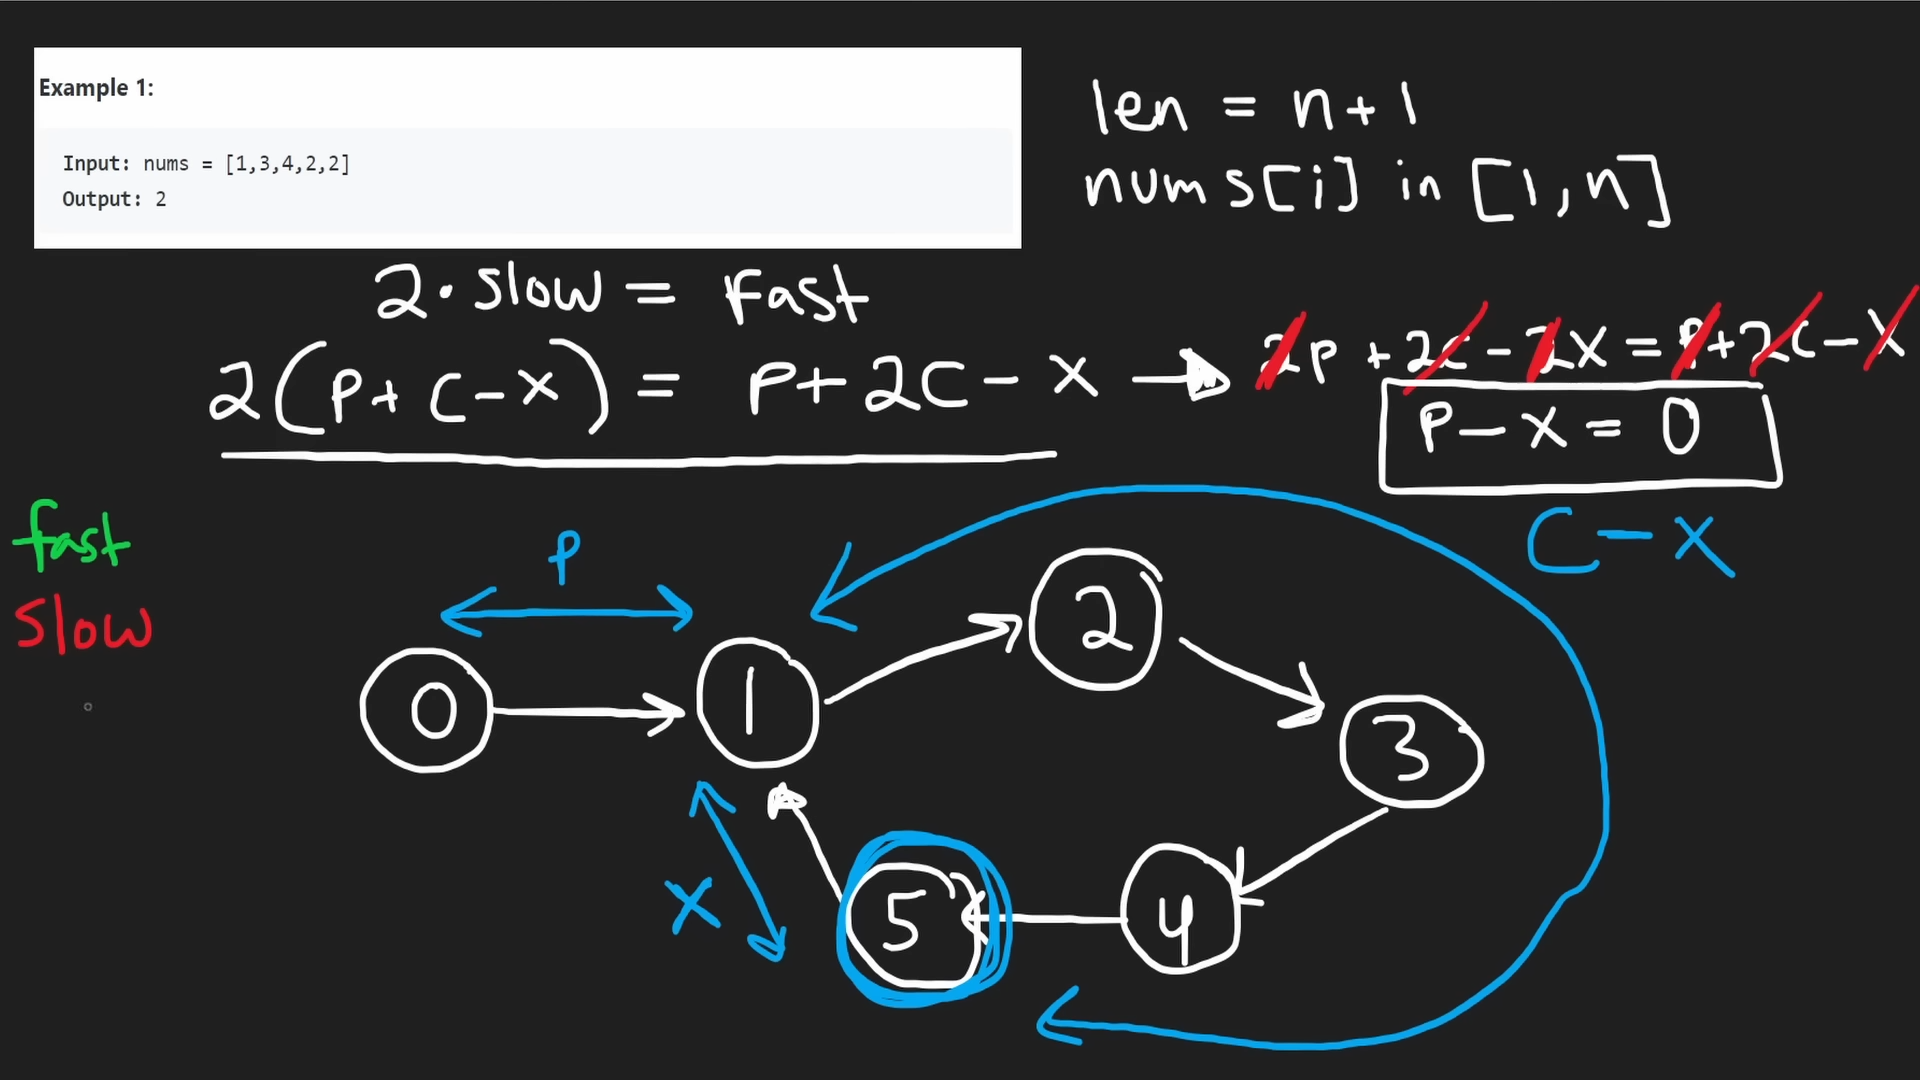 Example 1:
Input: nums = [1,3,4,2,2]
Output: 2
len = n+1
nums[i] in [1,n]
2·slow = Fast
2(p+c-x) = p+2c-x → 2p+2c-2x = p+2c-x
p-x=0
c-x
fast
slow
p
0
1
2
3
4
5
x